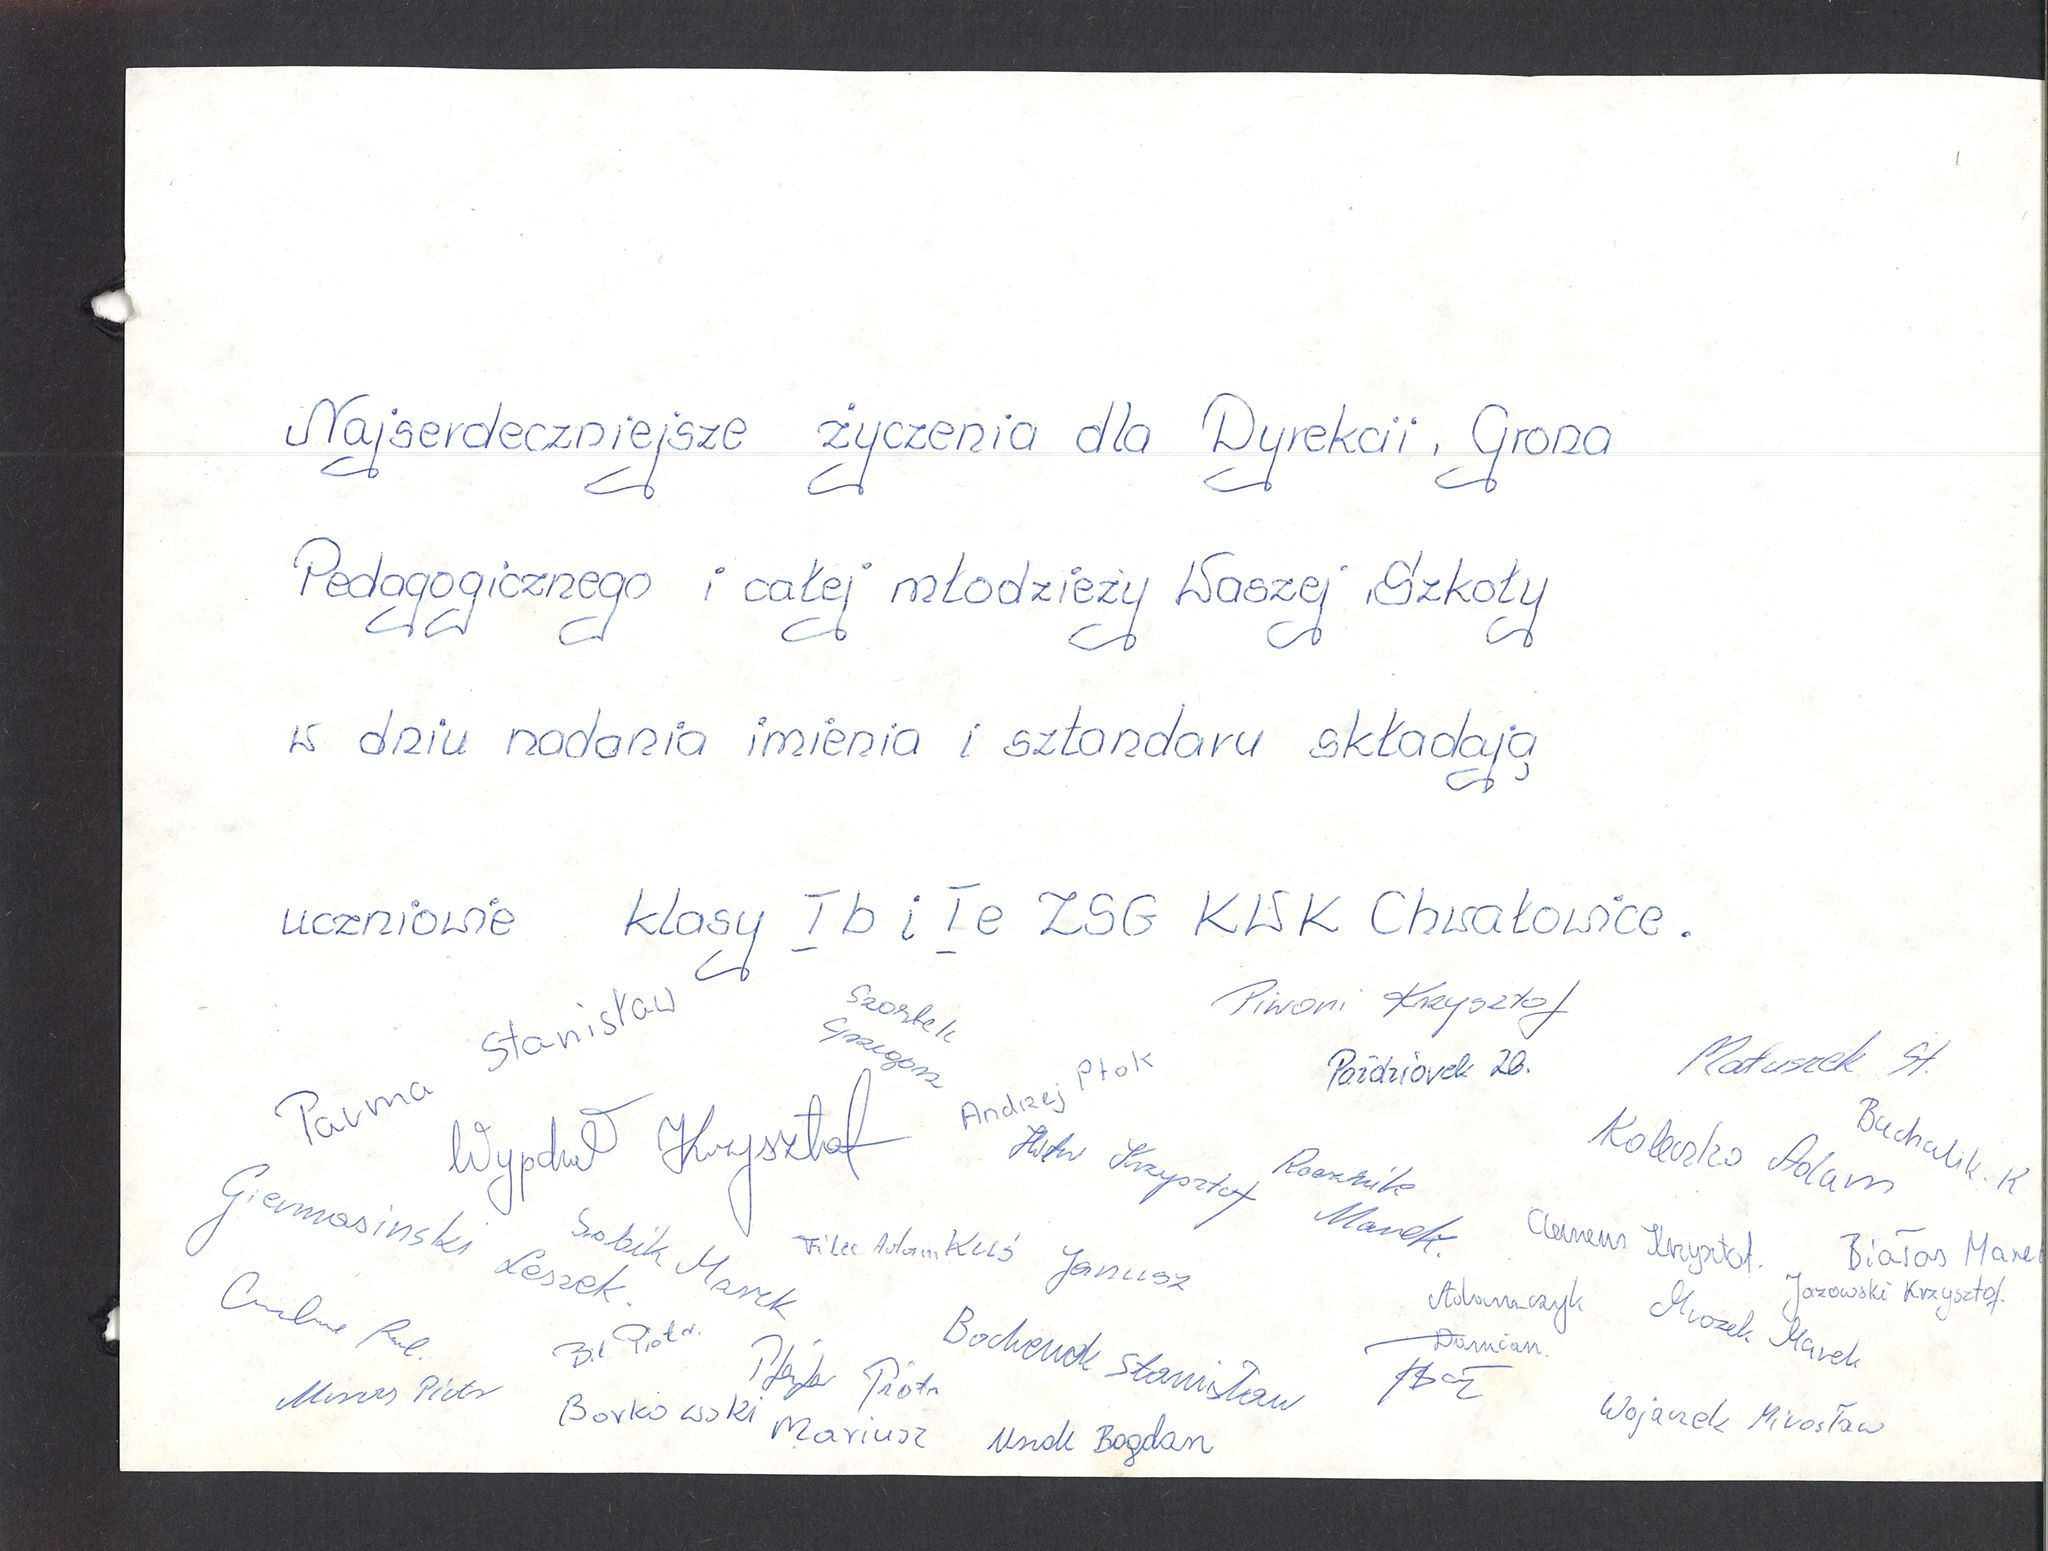 Najserdeczniejsze życzenia dla Dyrekcii, Grona
Pedagogicznego i całej młodzieży Waszej Szkoły
w dniu nadania imienia i sztandaru składają
uczniowie klasy I b i I e ZSG KWK Chwałowice.
Parma Stanisław
Grzegorz
Piwoni Krzysztof
Andrzej Ptok
Matuszek St.
Krzysztof
Krzysztof
Marek.
Adam
Buchalik. K
Giermasinski Leszek.
Sobik Marek
Filec Adam
Kuś Janusz
Clemens Krzysztof.
Białas Marek
Jazowski Krzysztof.
Adamczyk
Damian.
Mrozek Marek
Piotr
Piotr
Bochenek Stanisław
Piotr
Borkowski
Mariusz
Bogdan
Wojaczek Mirosław